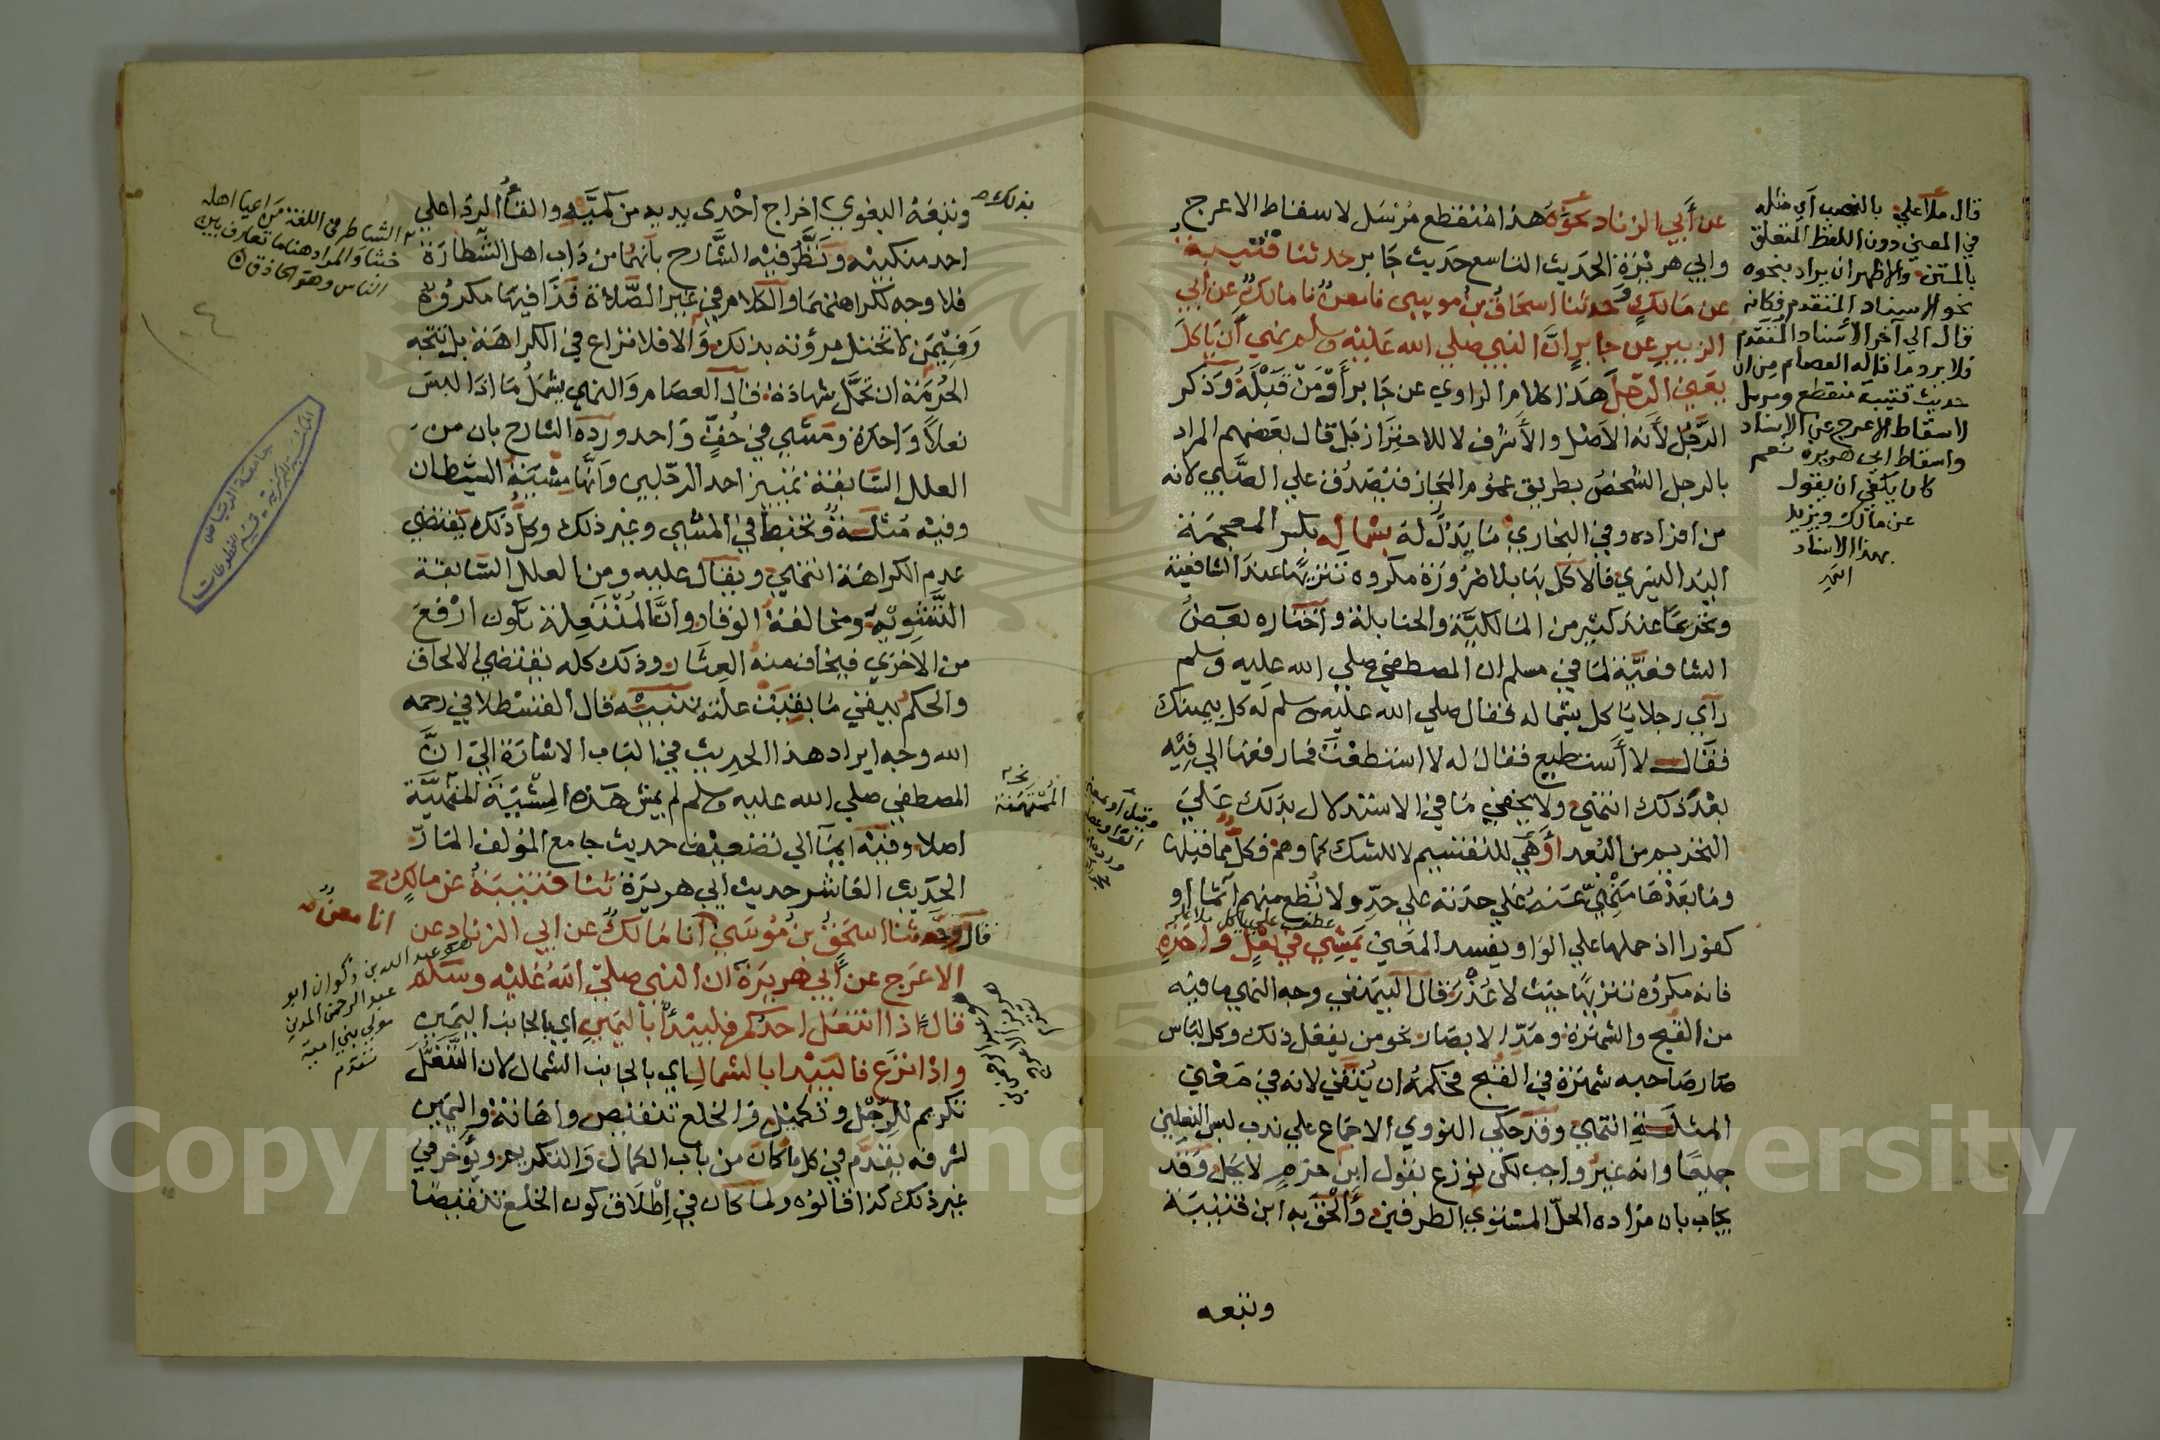 عن أبي الزناد نحوه هذا منقطع مرسل لاسقاط الاعرج
وابي هريرة الحديث التاسع حديث جابر حدثنا قتيبة
عن مالك وحدثنا اسحاق بن موسى نا معن نا مالك عن أبي
الزبير عن جابر أن النبي صلى الله عليه وسلم نهى أن ياكل
يعني الرجل هذا كلام الراوي عن جابر أو من قبله وذكر
الرجل لأنه الاصل والأشرف لا للاحتراز بل قال بعضهم المراد
بالرجل الشخص بطريق عموم المجاز فيصدق على الصبي لانه
من افراده وفي البخاري ما يدل له بشماله بكسر المعجمة
اليد اليسرى فالاكل بها بلا ضرورة مكروه تنزيها عند الشافعية
وتحريما عند كثير من المالكية والحنابلة واختاره بعض
الشافعية لما في مسلم ان المصطفى صلى الله عليه وسلم
رأى رجلا ياكل بشماله فقال صلى الله عليه وسلم له كل بيمينك
فقال لا أستطيع فقال له لا استطعت فما رفعها الى فيه
بعد ذلك انتهى ولا يخفى ما في الاستدلال بذلك على
التحريم من البعد أو هي للتقسيم لا للشك كما وهم فكل مما قبلها
وما بعدها منهي عنه على حدته على حد ولا تطع منهم آثما أو
عطف على ياكل
كفورا اذ حملها على الواو يفسد المعنى يمشي في نعل واحدة
فانه مكروه تنزيها حيث لا عذر قال البيهقي وجه النهي ما فيه
من القبح والشهرة ومد الابصار نحو من يفعل ذلك وكل لباس
صار صاحبه شهرة في القبح فحكمه ان يتقى لانه في معنى
المثلة انتهى وقد حكى النووي الاجماع على ندب لبس النعلين
جميعا وانه غير واجب لكن نوزع بقول ابن حزم لا يحل وقد
يجاب بان مراده الحل المستوي الطرفين وألحق به ابن قتيبة
وتبعه
قال ملا علي بالنصب أي مثله
في المعنى دون اللفظ المتعلق
بالمتن والاظهر ان يراد بنحوه
نحو الاسناد المتقدم فكانه
قال الى آخر الاسناد المتقدم
فلا يرد ما قاله العصام من ان
حديث قتيبة منقطع ومرسل
لاسقاط الاعرج عن الاسناد
واسقاط ابي هريرة نعم
كان يكفي ان يقول
عن مالك ويزيد
بهذا الاسناد
انتهى
وتبعه البغوي اخراج احدى يديه من كميه والقاء الرداء على
احد منكبيه ونظر فيه الشارح بانهما من داب اهل الشطارة
فلا وجه لكراهتهما والكلام في غير الصلاة فذا فيها مكروه
وفيمن لا تختل مروته بذلك والا فلا نزاع في الكراهة بل يتجه
الحرمة ان تحمل شهادة قال العصام والنهي يشمل ما اذا البس
نعلا واحدة ومشى في خف واحد ورده الشارح بان من
العلل السابقة تمييز احد الرجلين وانها مشية الشيطان
وفيه مثلة وتخبط في المشي وغير ذلك وكل ذلك يقتضي
عدم الكراهة انتهى ويقال عليه ومن العلل السابقة
التشويه ومخالفة الوقار وان المنتعلة تكون ارفع
من الاخرى فيخاف منه العثار وذلك كله يقتضي الالحاق
والحكم يبقى ما بقيت علته تنبيه قال القسطلاني رحمه
الله وجه ايراد هذا الحديث في الباب الاشارة الى ان
المصطفى صلى الله عليه وسلم لم يمش هذه المشية المنهية
اصلا وفيه ايماء الى تضعيف حديث جامع المؤلف المار
الحديث العاشر حديث ابي هريرة ثنا قتيبة عن مالك ح
قال وحدثنا اسحق بن موسى أنا مالك عن ابي الزناد عن
الاعرج عن أبي هريرة ان النبي صلى الله عليه وسلم
قال اذا انتعل احدكم فليبدأ باليمين اي بالجانب اليمين
واذا نزع فاليبدا بالشمال اي بالجانب الشمال لان التنعل
تكريم للرجل وتكميل والخلع تنقيص واهانة واليمين
لشرفه يقدم في كل ما كان من باب الكمال والتكريم ويؤخر في
غير ذلك كذا قالوه ولما كان في اطلاق كون الخلع تنقيصا
بذلك
٢ الشاطر في اللغة من اعيا اهله
خبثا والمراد هنا ما تعارف بين
الناس وهو الحاذق
١٠٤
جامعة الرياض
انا معن
عبد الله بن ذكوان ابو
عبد الرحمن المدني
مولى بني امية
تقدم
Copyright © King Saud University